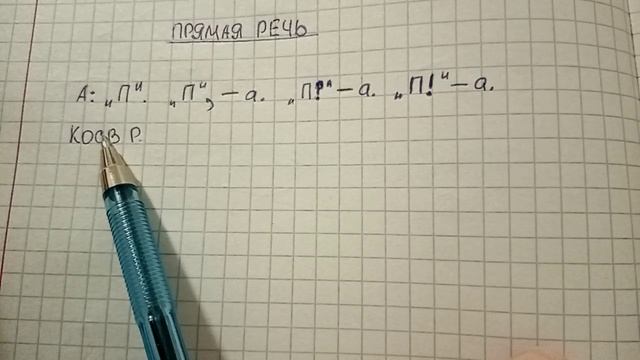 ПРЯМАЯ РЕЧЬ
А: „П“. „П“, – а. „П?“ – а. „П!“ – а.
КОСВ Р.